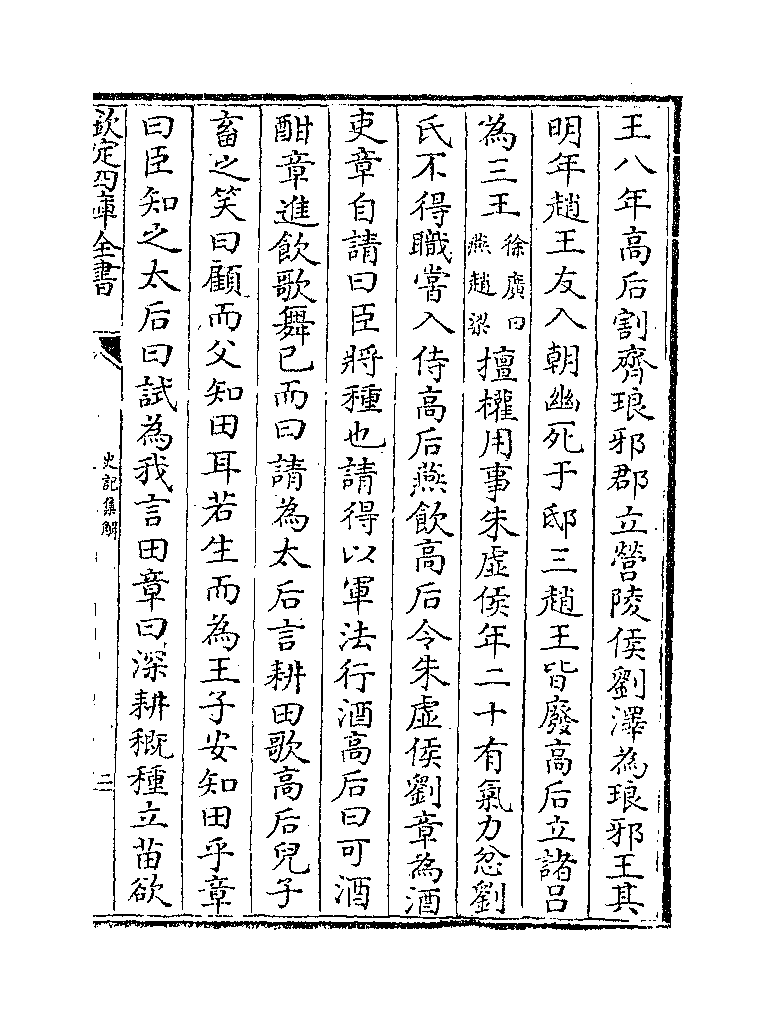 王八年高后割齊琅邪郡立營陵侯劉澤為琅邪王其
明年趙王友入朝幽死于邸三趙王皆廢高后立諸吕
為三王徐廣曰燕趙梁擅權用事朱虛侯年二十有氣力忿劉
氏不得職嘗入侍高后燕飲高后令朱虛侯劉章為酒
吏章自請曰臣將種也請得以軍法行酒高后曰可酒
酣章進飲歌舞已而曰請為太后言耕田歌高后兒子
畜之笑曰顧而父知田耳若生而為王子安知田乎章
曰臣知之太后曰試為我言田章曰深耕穊種立苗欲
欽定四庫全書
史記集解
二